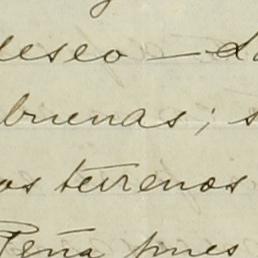 deseo — La
buenas; s
os terrenos
Peña pues